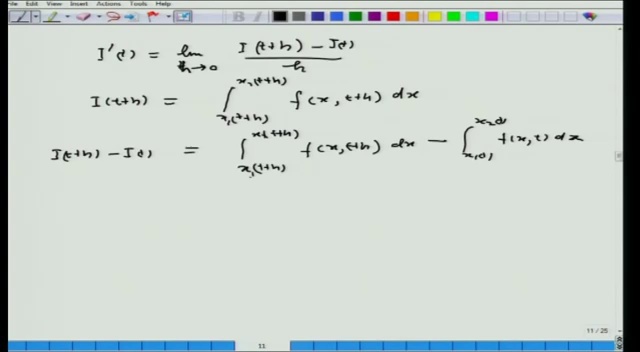 File Edit View Insert Actions Tools Help
B
I'(t) = lim h→0 I(t+h) - I(t) / h
I(t+h) = ∫ x₁(t+h) x₂(t+h) f(x, t+h) dx
I(t+h) - I(t) = ∫ x₁(t+h) x₂(t+h) f(x, t+h) dx - ∫ x₁(t) x₂(t) f(x, t) dx
11 / 25
11